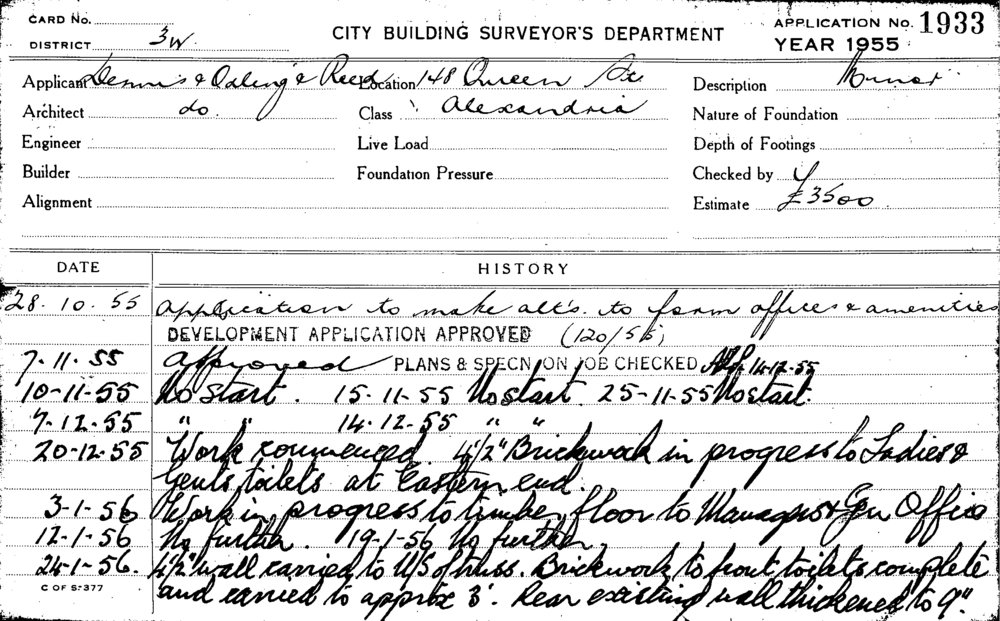 CARD No.
DISTRICT 3W.
CITY BUILDING SURVEYOR'S DEPARTMENT
APPLICATION No. 1933
YEAR 1955
Applicant Dennis & & Reed Location 148 Queen St Description Minor
Architect do. Class Alexandria Nature of Foundation
Engineer Live Load Depth of Footings
Builder Foundation Pressure Checked by
Alignment Estimate £3500
DATE HISTORY
28.10.55 Application to make alt's. to form offices & amenities
DEVELOPMENT APPLICATION APPROVED (120/56)
7.11.55 Approved PLANS & SPECN ON JOB CHECKED 14-12-55
10-11-55 No start. 15-11-55 No start. 25-11-55 No start.
7.12.55 " " 14.12.55 " "
20-12-55 Work commenced. 4½" Brickwork in progress to Ladies &
Gents toilets at Eastern end.
3-1-56 Work in progress to timber floor to Managers & Gen Office
12-1-56 No further. 19-1-56 No further.
24-1-56. 4½" wall carried to U/S of truss. Brickwork to front toilets complete
and carried to approx 3'. Rear existing wall thickened to 9".
C OF S-377